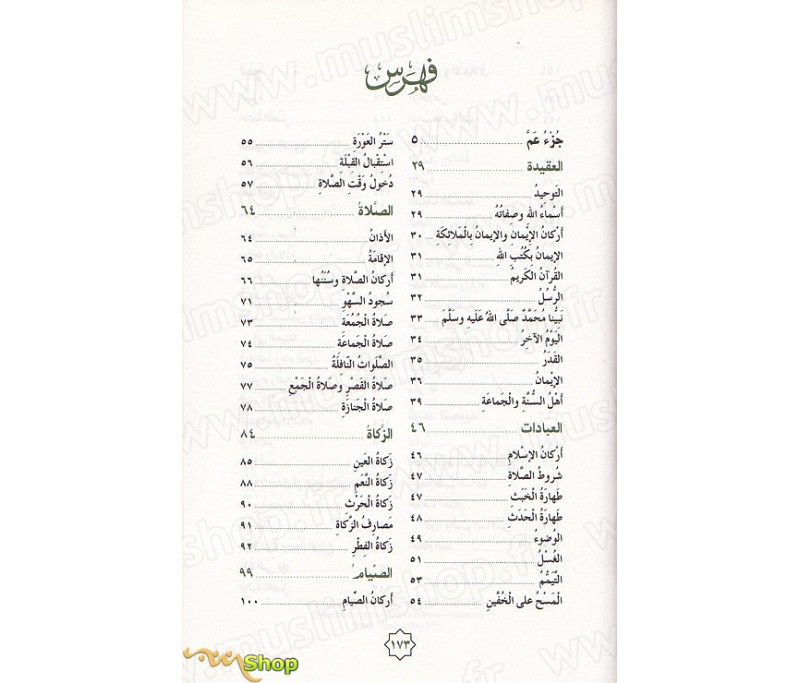 فهرس
جُزْءُ عَمَّ ٥
العقيدة ٢٩
التوحيدُ ٢٩
أَسْمَاءُ الله وصفاتُهُ ٢٩
أَرْكَانُ الإِيْمَانِ والإِيمَانُ بِالْمَلَائِكَةِ ٣٠
الإِيمَانُ بِكُتُبِ اللهِ ٣١
القُرْآنُ الْكَرِيمُ ٣١
الرُّسُلُ ٣٢
نَبِيُّنَا مُحَمَّدٌ صَلَّى اللهُ عَلَيهِ وسَلَّمَ ٣٣
الْيَوْمُ الآخِرُ ٣٤
القَدَرُ ٣٥
الإِيْمَانُ ٣٦
أَهْلُ السُّنَّةِ والْجَمَاعَةِ ٣٩
العبادات ٤٦
أَرْكَانُ الإِسْلامِ ٤٦
شُرُوطُ الصَّلاةِ ٤٧
طَهَارَةُ الْخَبَثِ ٤٧
طَهَارَةُ الْحَدَثِ ٤٨
الوُضُوءُ ٤٩
الغُسْلُ ٥١
التَّيَمُّمُ ٥٣
الْمَسْحُ على الْخُفَّيْنِ ٥٤
سَتْرُ العَوْرَةِ ٥٥
اسْتِقْبَالُ القِبْلَةِ ٥٦
دُخُولُ وَقْتِ الصَّلاةِ ٥٧
الصَّلاةُ ٦٤
الأَذَانُ ٦٤
الإِقَامَةُ ٦٥
أَرْكَانُ الصَّلاةِ وسُنَنُها ٦٦
سُجُودُ السَّهْوِ ٧١
صَلاةُ الْجُمُعَةِ ٧٣
صَلاةُ الْجَمَاعَةِ ٧٤
الصَّلَوَاتُ النَّافِلَةُ ٧٥
صَلاةُ القَصْرِ وصَلاةُ الْجَمْعِ ٧٧
صَلاةُ الْجَنَازَةِ ٧٨
الزَّكاةُ ٨٤
زَكَاةُ العَيْنِ ٨٥
زَكَاةُ النَّعَمِ ٨٨
زَكَاةُ الْحَرْثِ ٩٠
مَصَارِفُ الزَّكَاةِ ٩١
زَكَاةُ الفِطْرِ ٩٢
الصِّيَام ٩٩
أَرْكَانُ الصِّيَامِ ١٠٠
١٧٣
www.muslimshop.fr
Shop